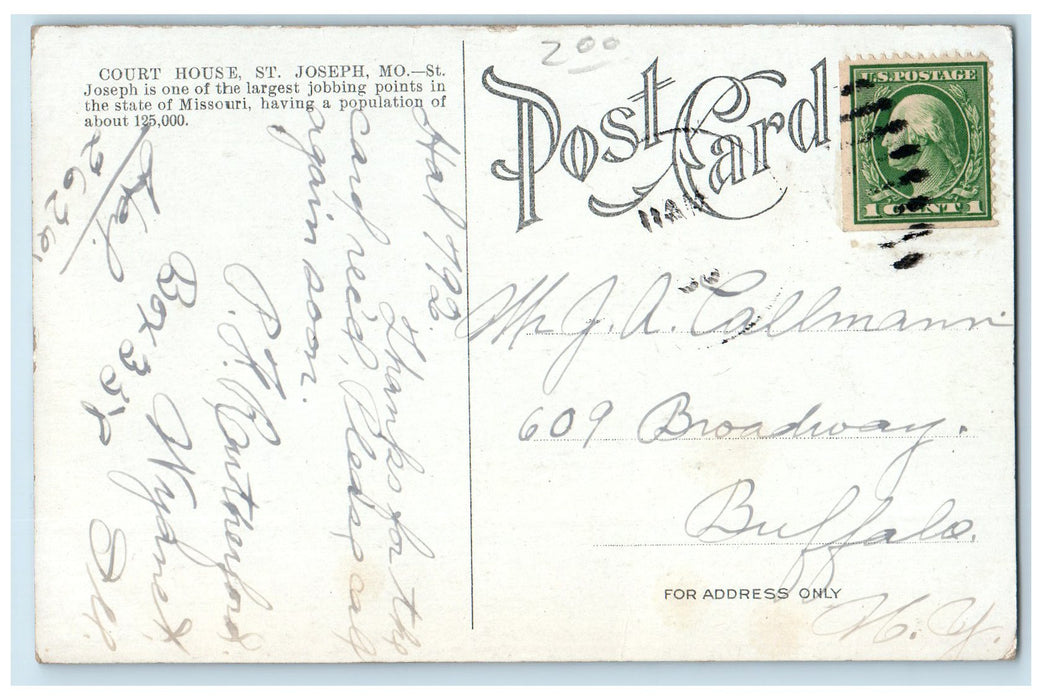 COURT HOUSE, ST. JOSEPH, MO.—St.
Joseph is one of the largest jobbing points in
the state of Missouri, having a population of
about 125,000.
200
Post Card
U.S. POSTAGE
1 CENT 1
Mr J. A. Callmann
609 Broadway.
Buffalo.
N. Y.
FOR ADDRESS ONLY
Thanks for the
card rec'd, Please call
again soon.
P. H. Rutherford.
Box 358
Wyanet
Ill.